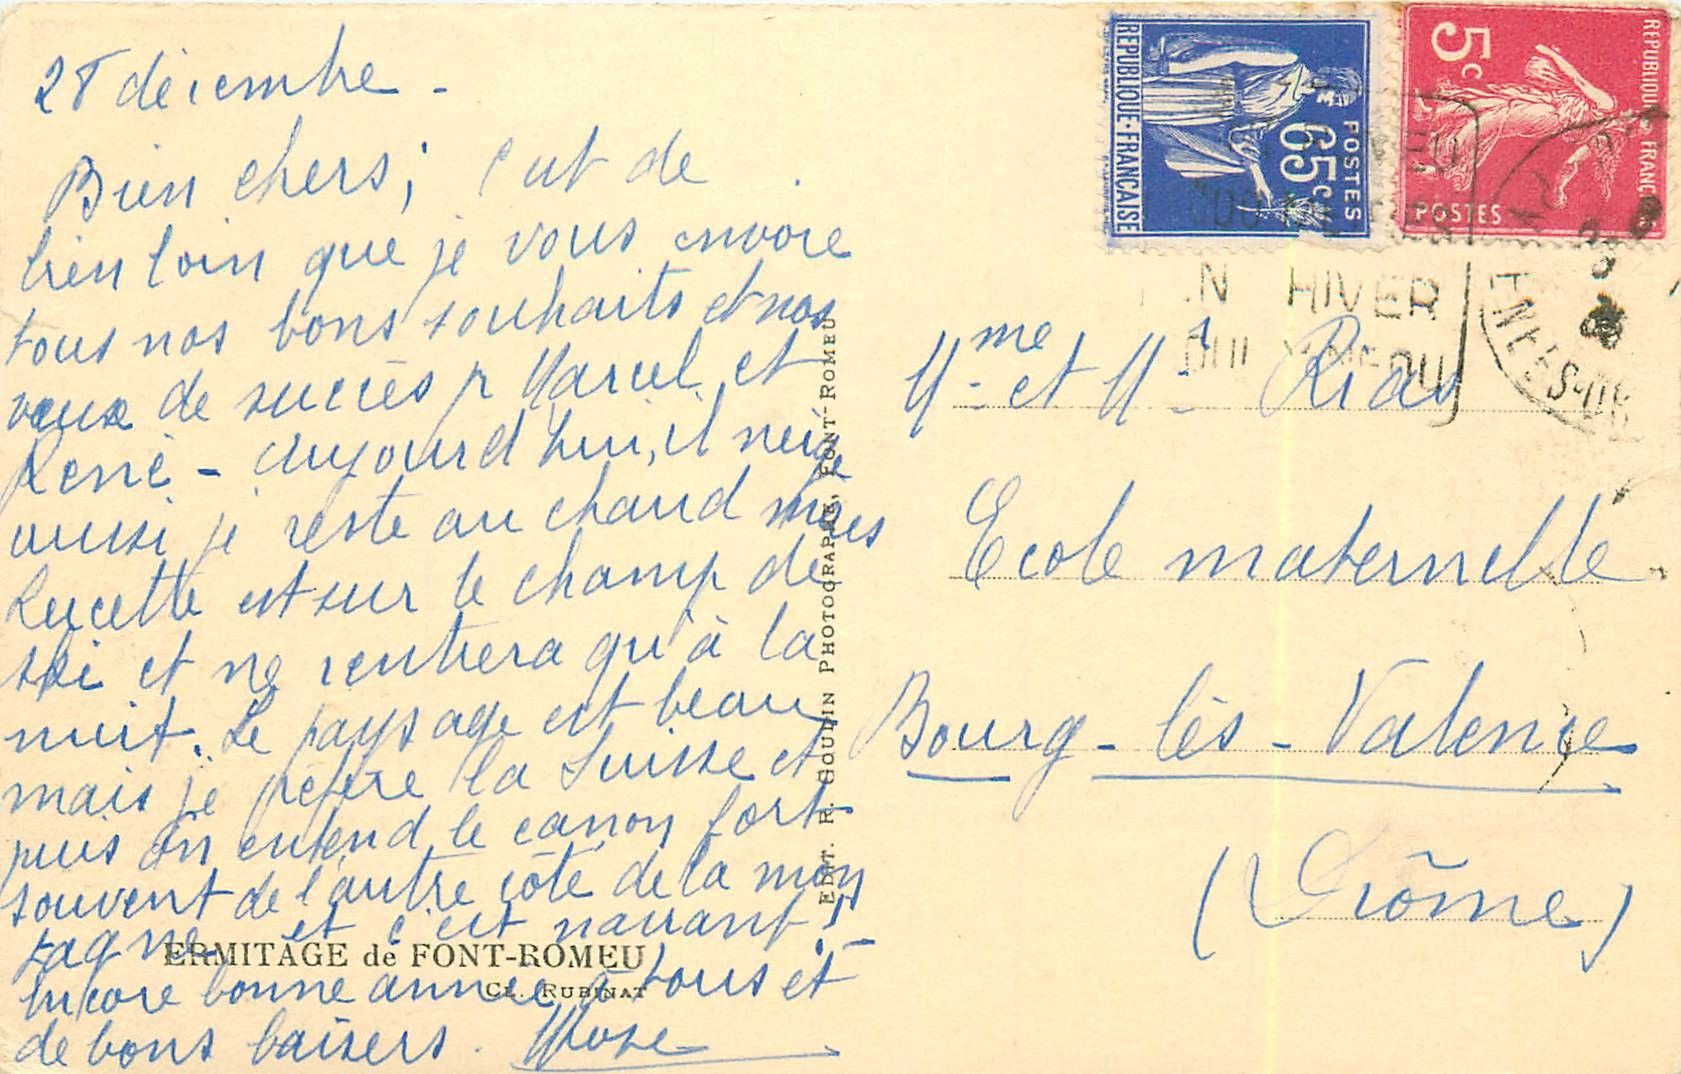 28 décembre -
Bien chers, c'est de
bien loin que je vous envoie
tous nos bons souhaits et nos
vœux de succès pr Marcel et
René - Aujourd'hui, il neige
aussi je reste au chaud mais
Lucette est sur le champ de
ski et ne rentrera qu'à la
nuit. Le paysage est beau
mais je préfère la Suisse et
puis on entend le canon fort
souvent de l'autre côté de la mon
tagne et c'est navrant! -
Encore bonne année à tous et
de bons baisers.
ERMITAGE de FONT-ROMEU
CL. RUBINAT
EDIT. R. GOUDIN PHOTOGRAPHE, FONT-ROMEU
RÉPUBLIQUE-FRANÇAISE
POSTES
65c
5c
POSTES
HIVER
Mme et Mr Rias
Ecole maternelle
Bourg-lès-Valence
(Drôme)